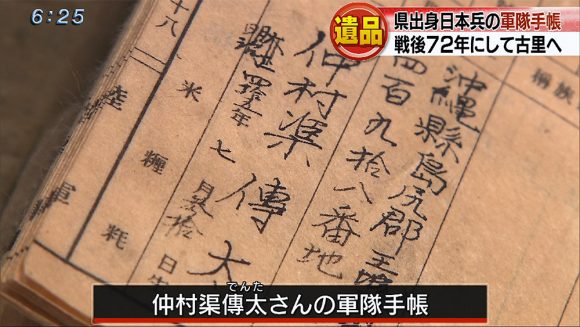 6:25
遺品
県出身日本兵の軍隊手帳
戦後72年にして古里へ
族
沖縄縣島尻郡
四百九拾八番地
仲村渠傳太
四拾五年七月
日生
十八
米
糎
陸
軍
粍
でんた
仲村渠傳太さんの軍隊手帳